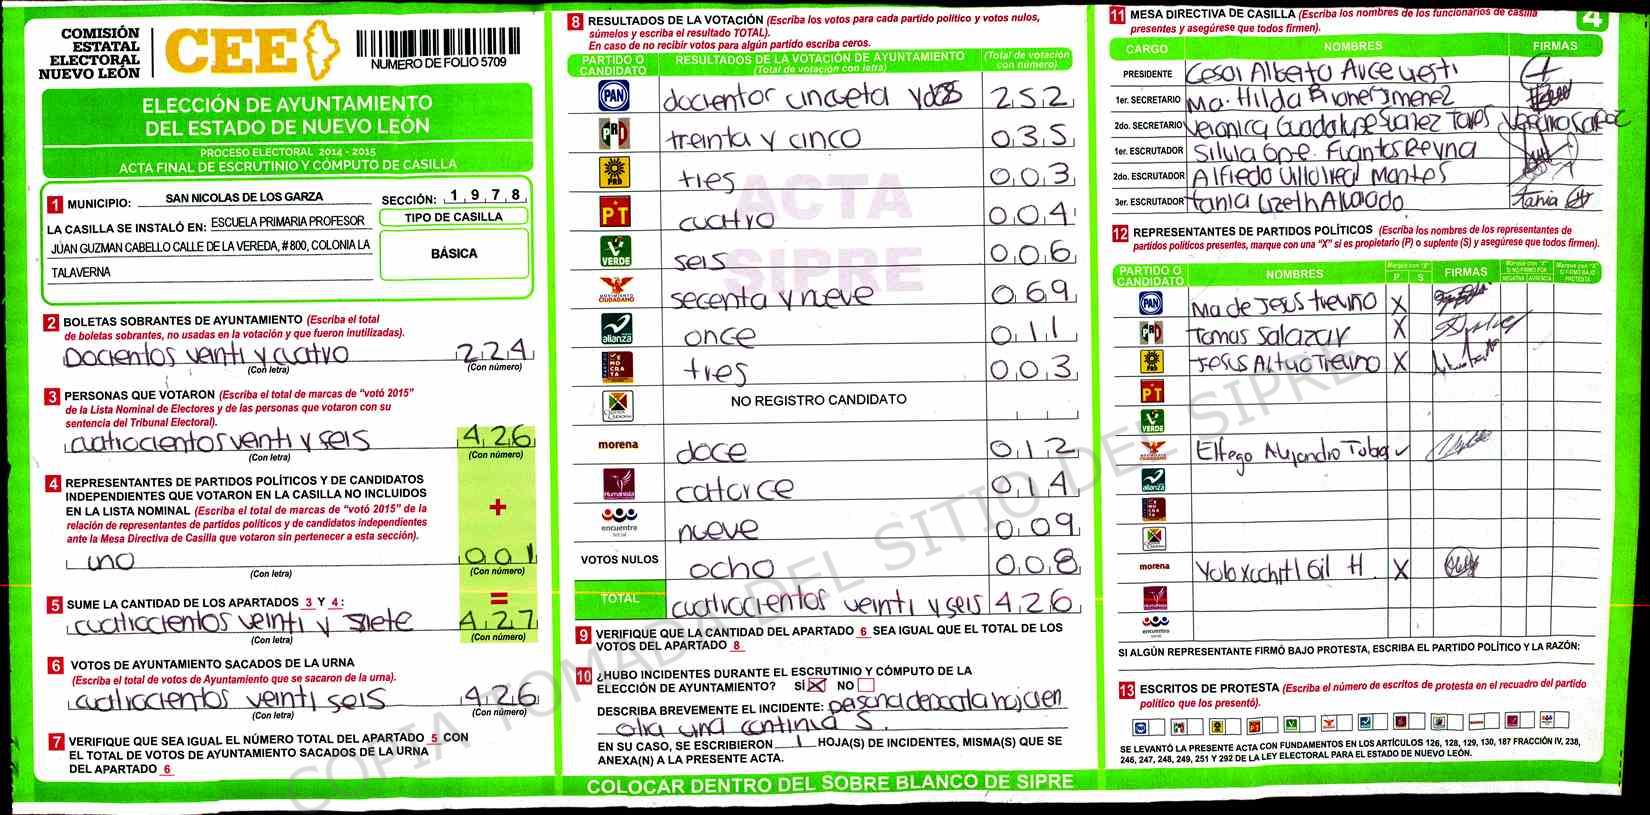 COMISIÓN
ESTATAL
ELECTORAL
NUEVO LEÓN
CEE
NUMERO DE FOLIO 5709
ELECCIÓN DE AYUNTAMIENTO
DEL ESTADO DE NUEVO LEÓN
PROCESO ELECTORAL 2014 - 2015
ACTA FINAL DE ESCRUTINIO Y CÓMPUTO DE CASILLA
1 MUNICIPIO: SAN NICOLAS DE LOS GARZA SECCIÓN: 1,9,7,8
LA CASILLA SE INSTALÓ EN: ESCUELA PRIMARIA PROFESOR
JUAN GUZMAN CABELLO CALLE DE LA VEREDA, # 800, COLONIA LA
TALAVERNA
TIPO DE CASILLA
BÁSICA
2 BOLETAS SOBRANTES DE AYUNTAMIENTO (Escriba el total
de boletas sobrantes, no usadas en la votación y que fueron inutilizadas).
Docientos veinti y cuatro 2,2,4
(Con letra) (Con número)
3 PERSONAS QUE VOTARON (Escriba el total de marcas de "votó 2015"
de la Lista Nominal de Electores y de las personas que votaron con su
sentencia del Tribunal Electoral).
cuatrocientos veinti y seis 4,2,6
(Con letra) (Con número)
4 REPRESENTANTES DE PARTIDOS POLÍTICOS Y DE CANDIDATOS
INDEPENDIENTES QUE VOTARON EN LA CASILLA NO INCLUIDOS
EN LA LISTA NOMINAL (Escriba el total de marcas de "votó 2015" de la
relación de representantes de partidos políticos y de candidatos independientes
ante la Mesa Directiva de Casilla que votaron sin pertenecer a esta sección).
+
uno 0,0,1
(Con letra) (Con número)
=
5 SUME LA CANTIDAD DE LOS APARTADOS 3 Y 4:
cuatrocientos veinti y siete 4,2,7
(Con letra) (Con número)
6 VOTOS DE AYUNTAMIENTO SACADOS DE LA URNA
(Escriba el total de votos de Ayuntamiento que se sacaron de la urna).
cuatrocientos veinti seis 4,2,6
(Con letra) (Con número)
7 VERIFIQUE QUE SEA IGUAL EL NÚMERO TOTAL DEL APARTADO 5 CON
EL TOTAL DE VOTOS DE AYUNTAMIENTO SACADOS DE LA URNA
DEL APARTADO 6
8 RESULTADOS DE LA VOTACIÓN (Escriba los votos para cada partido político y votos nulos,
súmelos y escriba el resultado TOTAL).
En caso de no recibir votos para algún partido escriba ceros.
PARTIDO O CANDIDATO RESULTADOS DE LA VOTACIÓN DE AYUNTAMIENTO (Total de votación con letra) (Total de votación con número)
PAN 2,5,2
PRI treinta y cinco 0,3,5
PRD tres 0,0,3
PT cuatro 0,0,4
VERDE seis 0,0,6
MOVIMIENTO CIUDADANO secenta y nueve 0,6,9
alianza once 0,1,1
DEMOCRATA tres 0,0,3
NO REGISTRO CANDIDATO
morena doce 0,1,2
Humanista catorce 0,1,4
encuentro social nueve 0,0,9
VOTOS NULOS ocho 0,0,8
TOTAL cuatrocientos veinti y seis 4,2,6
ACTA
SIPRE
9 VERIFIQUE QUE LA CANTIDAD DEL APARTADO 6 SEA IGUAL QUE EL TOTAL DE LOS
VOTOS DEL APARTADO 8
10 ¿HUBO INCIDENTES DURANTE EL ESCRUTINIO Y CÓMPUTO DE LA
ELECCIÓN DE AYUNTAMIENTO? SÍ X NO
DESCRIBA BREVEMENTE EL INCIDENTE:
EN SU CASO, SE ESCRIBIERON 1 HOJA(S) DE INCIDENTES, MISMA(S) QUE SE
ANEXA(N) A LA PRESENTE ACTA.
4
11 MESA DIRECTIVA DE CASILLA (Escriba los nombres de los funcionarios de casilla
presentes y asegúrese que todos firmen).
CARGO NOMBRES FIRMAS
PRESIDENTE Cesar Alberto
1er. SECRETARIO Ma. Hilda Jimenez
2do. SECRETARIO Veronica Guadalupe Suarez
1er. ESCRUTADOR Silvia Gpe. Fuantos Reyna
2do. ESCRUTADOR Alfredo Villalreal Montes
3er. ESCRUTADOR Tania Lizeth Alvarado Tania
12 REPRESENTANTES DE PARTIDOS POLÍTICOS (Escriba los nombres de los representantes de
partidos políticos presentes, marque con una "X" si es propietario (P) o suplente (S) y asegúrese que todos firmen).
PARTIDO O CANDIDATO NOMBRES Marque con "X" P S FIRMAS Marque con "X" SI NO FIRMÓ POR NEGATIVA AUSENCIA Marque con "X" SI FIRMÓ BAJO PROTESTA
PAN Ma de Jesus Treviño X
PRI Tomas Salazar X
PRD Jesus Treviño X
PT
VERDE
MOVIMIENTO CIUDADANO Elfego Alejandro
alianza
DEMOCRATA
morena Gil H. X
Humanista
encuentro social
SI ALGÚN REPRESENTANTE FIRMÓ BAJO PROTESTA, ESCRIBA EL PARTIDO POLÍTICO Y LA RAZÓN:
13 ESCRITOS DE PROTESTA (Escriba el número de escritos de protesta en el recuadro del partido
político que los presentó).
SE LEVANTÓ LA PRESENTE ACTA CON FUNDAMENTOS EN LOS ARTÍCULOS 126, 128, 129, 130, 187 FRACCIÓN IV, 238,
246, 247, 248, 249, 251 Y 292 DE LA LEY ELECTORAL PARA EL ESTADO DE NUEVO LEÓN.
COLOCAR DENTRO DEL SOBRE BLANCO DE SIPRE
COPIA TOMADA DEL SITIO DEL SIPRE